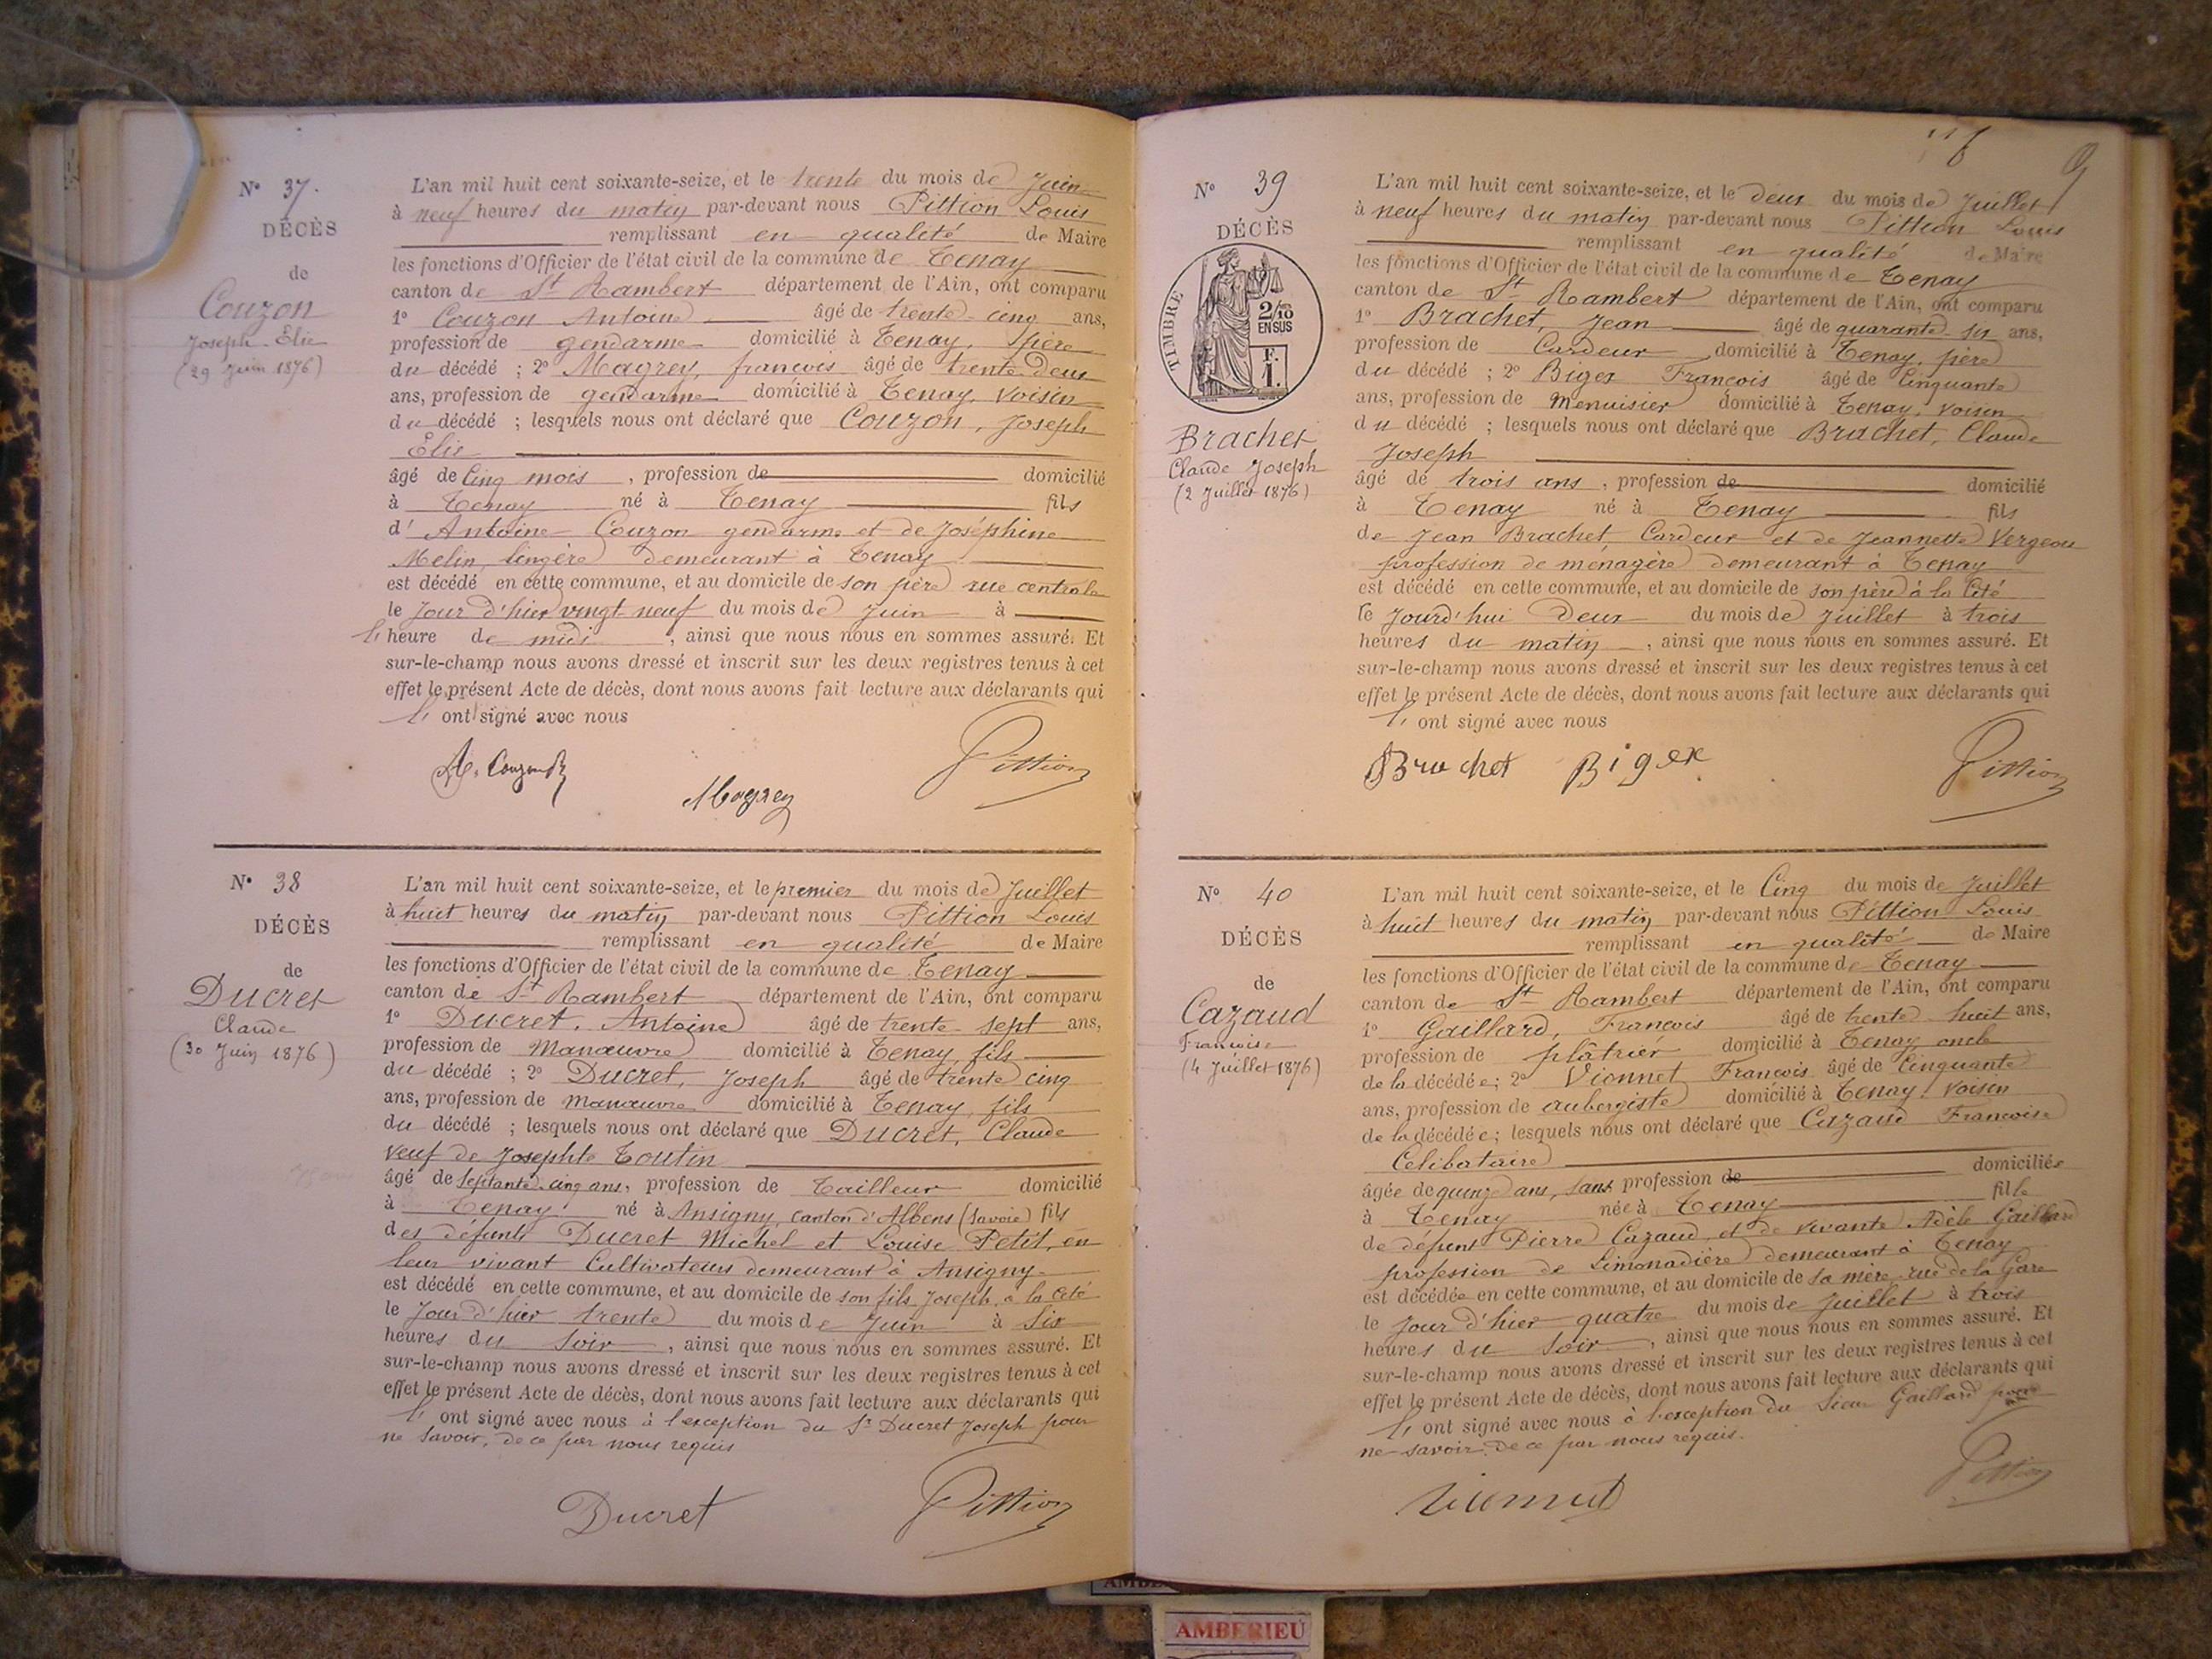 N° 37.
DÉCÈS
de
Couzon
Joseph-Elie
(29 Juin 1876)
L'an mil huit cent soixante-seize, et le trente du mois de Juin
à neuf heures du matin par-devant nous Pittion Louis
remplissant en qualité de Maire
les fonctions d'Officier de l'état civil de la commune de Tenay
canton de St Rambert département de l'Ain, ont comparu
1° Couzon Antoine âgé de trente-cinq ans,
profession de gendarme domicilié à Tenay, père
du décédé ; 2° Magrey, françois âgé de trente deux
ans, profession de gendarme domicilié à Tenay, voisin
du décédé ; lesquels nous ont déclaré que Couzon, Joseph
Elie
âgé de Cinq mois, profession de domicilié
à Tenay né à Tenay fils
d'Antoine Couzon gendarme et de Joséphine
Melin, lingère demeurant à Tenay
est décédé en cette commune, et au domicile de son père rue centrale
le Jour d'hier vingt-neuf du mois de Juin à
l'heure de midi, ainsi que nous nous en sommes assuré. Et
sur-le-champ nous avons dressé et inscrit sur les deux registres tenus à cet
effet le présent Acte de décès, dont nous avons fait lecture aux déclarants qui
l' ont signé avec nous
A. Couzon
Magrey
Pittion
N° 38
DÉCÈS
de
Ducret
Claude
(30 Juin 1876)
L'an mil huit cent soixante-seize, et le premier du mois de Juillet
à huit heures du matin par-devant nous Pittion Louis
remplissant en qualité de Maire
les fonctions d'Officier de l'état civil de la commune de Tenay
canton de St Rambert département de l'Ain, ont comparu
1° Ducret, Antoine âgé de trente-sept ans,
profession de Manœuvre domicilié à Tenay, fils
du décédé ; 2° Ducret, Joseph âgé de trente cinq
ans, profession de manœuvre domicilié à Tenay, fils
du décédé ; lesquels nous ont déclaré que Ducret, Claude
veuf de Josephte Toutin
âgé de septante-cinq ans, profession de Tailleur domicilié
à Tenay né à Ansigny, canton d'Albens (Savoie) fils
des défunts Ducret Michel et Louise Petit, en
leur vivant Cultivateurs demeurant à Ansigny
est décédé en cette commune, et au domicile de son fils Joseph, à la Cité
le Jour d'hier trente du mois de Juin à Six
heures du soir, ainsi que nous nous en sommes assuré. Et
sur-le-champ nous avons dressé et inscrit sur les deux registres tenus à cet
effet le présent Acte de décès, dont nous avons fait lecture aux déclarants qui
l' ont signé avec nous à l'exception du Sr Ducret Joseph pour
ne savoir, de ce par nous requis
Ducret
Pittion
N° 39
DÉCÈS
TIMBRE
2/10
EN SUS
F.
1.
Brachet
Claude Joseph
(2 Juillet 1876)
L'an mil huit cent soixante-seize, et le Deux du mois de Juillet
à neuf heures du matin par-devant nous Pittion Louis
remplissant en qualité de Maire
les fonctions d'Officier de l'état civil de la commune de Tenay
canton de St Rambert département de l'Ain, ont comparu
1° Brachet, Jean âgé de quarante-six ans,
profession de Cardeur domicilié à Tenay, père
du décédé ; 2° Bigex François âgé de Cinquante
ans, profession de Menuisier domicilié à Tenay, voisin
du décédé ; lesquels nous ont déclaré que Brachet, Claude
Joseph
âgé de trois ans, profession de domicilié
à Tenay né à Tenay fils
de Jean Brachet, Cardeur et de Jeannette Vergeou
profession de ménagère demeurant à Tenay
est décédé en cette commune, et au domicile de son père à la Cité
le Jourd'hui Deux du mois de Juillet à trois
heures du matin, ainsi que nous nous en sommes assuré. Et
sur-le-champ nous avons dressé et inscrit sur les deux registres tenus à cet
effet le présent Acte de décès, dont nous avons fait lecture aux déclarants qui
l' ont signé avec nous
Brachet
Bigex
Pittion
N° 40
DÉCÈS
de
Cazaud
Françoise
(4 Juillet 1876)
L'an mil huit cent soixante-seize, et le Cinq du mois de Juillet
à huit heures du matin par-devant nous Pittion Louis
remplissant en qualité de Maire
les fonctions d'Officier de l'état civil de la commune de Tenay
canton de St Rambert département de l'Ain, ont comparu
1° Gaillard, François âgé de trente-huit ans,
profession de plâtrier domicilié à Tenay, oncle
de la décédée; 2° Vionnet François âgé de Cinquante
ans, profession de aubergiste domicilié à Tenay, voisin
de la décédée; lesquels nous ont déclaré que Cazaud Françoise
Célibataire
âgée de quinze ans, sans profession de domiciliée
à Tenay née à Tenay fille
de défunt Pierre Cazaud et de vivante Adèle Gaillard
profession de Limonadière demeurant à Tenay
est décédée en cette commune, et au domicile de sa mère, rue de la Gare
le jour d'hier quatre du mois de Juillet à trois
heures du soir, ainsi que nous nous en sommes assuré. Et
sur-le-champ nous avons dressé et inscrit sur les deux registres tenus à cet
effet le présent Acte de décès, dont nous avons fait lecture aux déclarants qui
l' ont signé avec nous à l'exception du Sieur Gaillard pour
ne savoir, de ce par nous requis.
Vionnet
Pittion
AMBERIEU